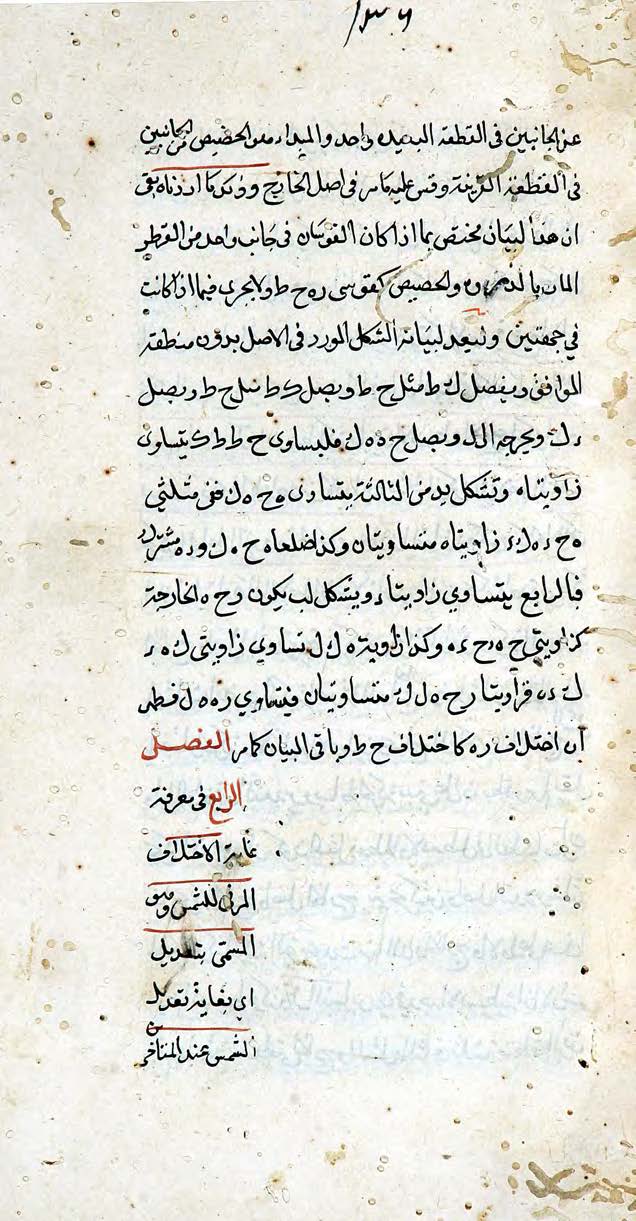 ١٣٦
عن الجانبين فى القطعة البعيدة واحد والمبداء من الحضيض من الجانبين
فى القطعة القريبة وقس عليه مامر فى اصل الخارج وذكر ما اردناه بقى
ان هذا البيان مختص بما اذا كان القوسان فى جانب واحد من القطر
المار بالذروة والحضيض كقوسى ره ح ط ولا يجرى فيما اذا كانت
فى جهتين ونعيد لبيانه الشكل المورد فى الاصل بدون منطقة
الموافق ونفصل ك ط مثل ح ط ونصل ك ط مثل ح ط ونصل
ء ك ونخرجه الى ل ونصل ح ه ه ك فلتساوى ح ط ط ك يتساوى
زاويتاه وتشكل يد من الثالثة يتساوى ه ح ه ك ففى مثلثى
ه ح ء ه ك ء زاويتاه متساويتان وكذا ضلعاه ح ه ك و ء ه مشترك
فبالرابع يتساوى زاويتا ء وبشكل لب يكون رح ه الخارجة
كزاويتى ح ه ء ح ء ه وكذا زاوية ه ك ل تساوى زاويتى ك ه ء
ك ء ه فزاويتا رح ه ل ك ه متساويتان فيتساوى ره ه ل فظهر
ان اختلاف ره كاختلاف ح ط وباقى البيان كما مر الفصل
الرابع فى معرفة
غاية الاختلاف
المرئى للشمس وهو
المسمى بتعديل
اى بغاية تعديل
الشمس عند المتاخرين